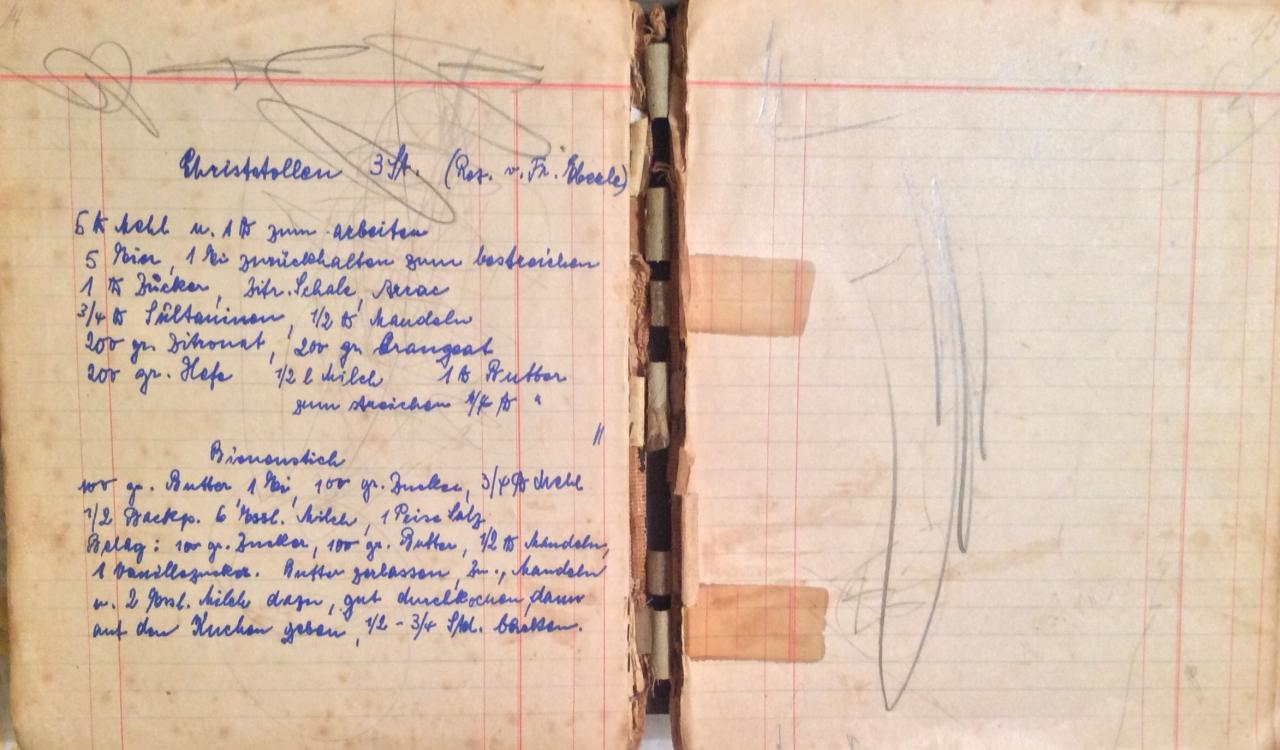 14
Christstollen 3 St. (Rez. v. Fr. Eberle)
5 ℔ Mehl u. 1 ℔ zum arbeiten
5 Eier, 1 Ei zurückhalten zum bestreichen
1 ℔ Zucker, Zitr. Schale, Arrac
3/4 ℔ Sultaninen, 1/2 ℔ Mandeln
200 gr. Zitronat, 200 gr. Orangeat
200 gr. Hefe 1/2 l Milch 1 ℔ Butter
zum streichen 1/4 ℔ "
Bienenstich
100 gr. Butter, 1 Ei, 100 gr. Zucker, 3/4 ℔ Mehl
1/2 Backp. 6 Essl. Milch, 1 Prise Salz,
Belag: 100 gr. Zucker, 100 gr. Butter, 1/2 ℔ Mandeln,
1 Vanillezucker. Butter zerlassen, Zu., Mandeln
u. 2 Essl. Milch dazu, gut durchkochen, dann
auf den Kuchen geben, 1/2 - 3/4 Std. backen.